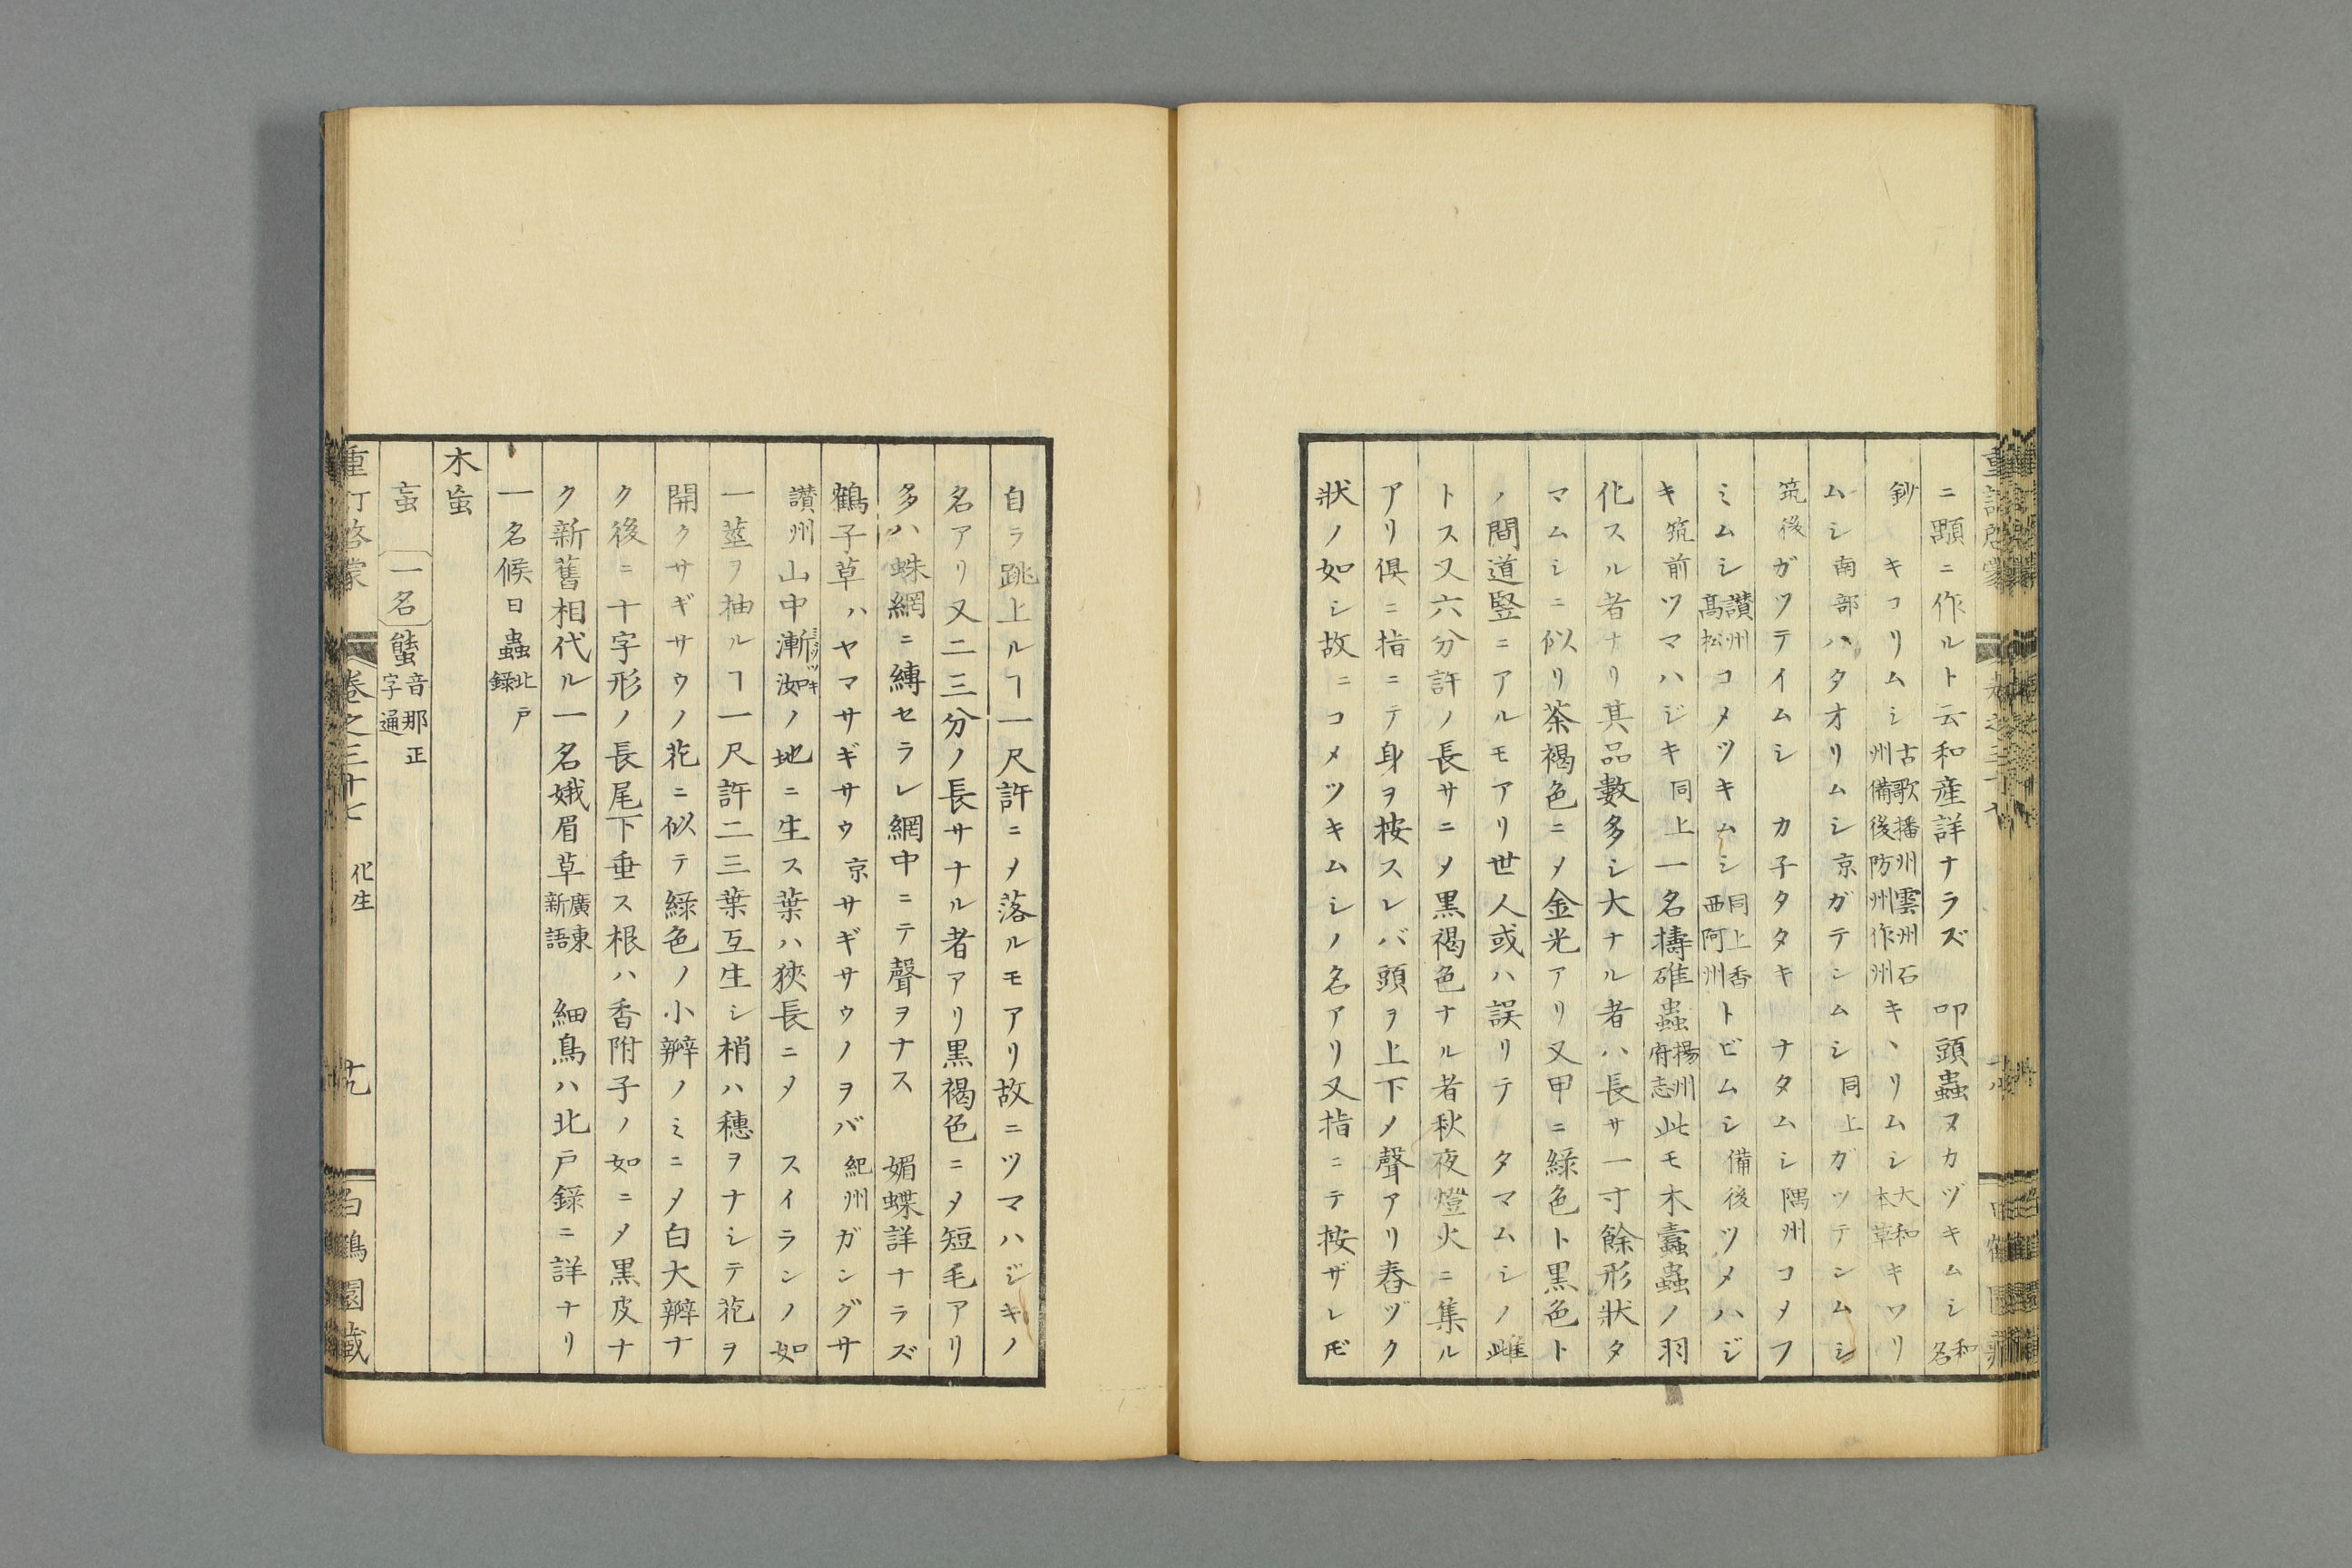 ニ顯ニ作ルト云和産詳ナラズ　叩頭蟲ヌカヅキムシ和名
鈔　キコリムシ古歌播州雲州石州備後防州作州キヽリムシ大和本草キワリ
ムシ南部ハタオリムシ京ガテンムシ同上ガツテンムシ
筑後ガツテイムシ　カ子タタキ　ナタムシ隅州コメフ
ミムシ讃州高松コメツキムシ同上香西阿州トビムシ備後ツメハジ
キ筑前ツマハジキ同上一名擣碓蟲揚州府志此モ木蠹蟲ノ羽
化スル者ナリ其品數多シ大ナル者ハ長サ一寸餘形狀タ
マムシニ似リ茶褐色ニメ金光アリ又甲ニ緑色ト黒色ト
ノ間道竪ニアルモアリ世人或ハ誤リテ　タマムシノ雌
トス又六分許ノ長サニメ黒褐色ナル者秋夜燈火ニ集ル
アリ倶ニ指ニテ身ヲ按スレバ頭ヲ上下メ聲アリ舂ヅク
狀ノ如シ故ニコメツキムシノ名アリ又指ニテ按ザレ𪜈
自ラ跳上ルヿ一尺許ニメ落ルモアリ故ニツマハジキノ
名アリ又二三分ノ長サナル者アリ黒褐色ニメ短毛アリ
多ハ蛛網ニ縛セラレ網中ニテ聲ヲナス　媚蝶詳ナラズ
鶴子草ハヤマサギサウ京サギサウノヲバ紀州ガングサ
讃州山中漸洳ノ地ニ生ス葉ハ狹長ニメ　スイランノ如
一莖ヲ抽ルヿ一尺許二三葉互生シ梢ハ穗ヲナシテ花ヲ
開クサギサウノ花ニ似テ緑色ノ小瓣ノミニメ白大瓣ナ
ク後ニ十字形ノ長尾下垂ス根ハ香附子ノ如ニメ黒皮ナ
ク新舊相代ル一名娥眉草廣東新語　細鳥ハ北戸録ニ詳ナリ
一名候日蟲北戸録
木䖟
䖟　一名　音那正字通
重訂啓蒙　卷之三十七　化生　十九　白鶴園藏